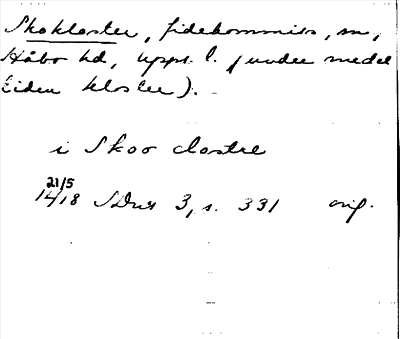 Skokloster, fideikommiss, sn,
Håbo hd, Upps. l. (under medel
tiden kloster).
i Skoo clostre
21/5
1418 SDns 3, s. 331 orig.